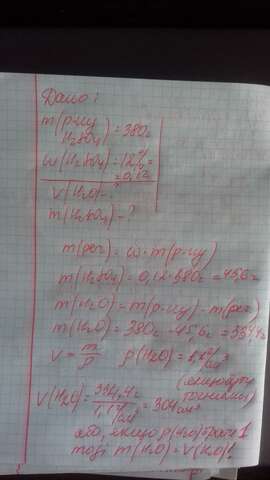 Дано:
m(р-ну
H₂SO₄) = 380г
w(H₂SO₄) = 12% =
= 0,12
V(H₂O) - ?
m(H₂SO₄) - ?
m(реч) = w · m(р-ну)
m(H₂SO₄) = 0,12 · 380г = 45,6г
m(H₂O) = m(р-ну) - m(реч)
m(H₂O) = 380г - 45,6г = 334,4г
V = m/ρ ρ(H₂O) = 1,1г/см³
V(H₂O) = 334,4г / 1,1г/см³ = 304см³
або, якщо ρ(H₂O) брати 1
тоді m(H₂O) = V(H₂O)!